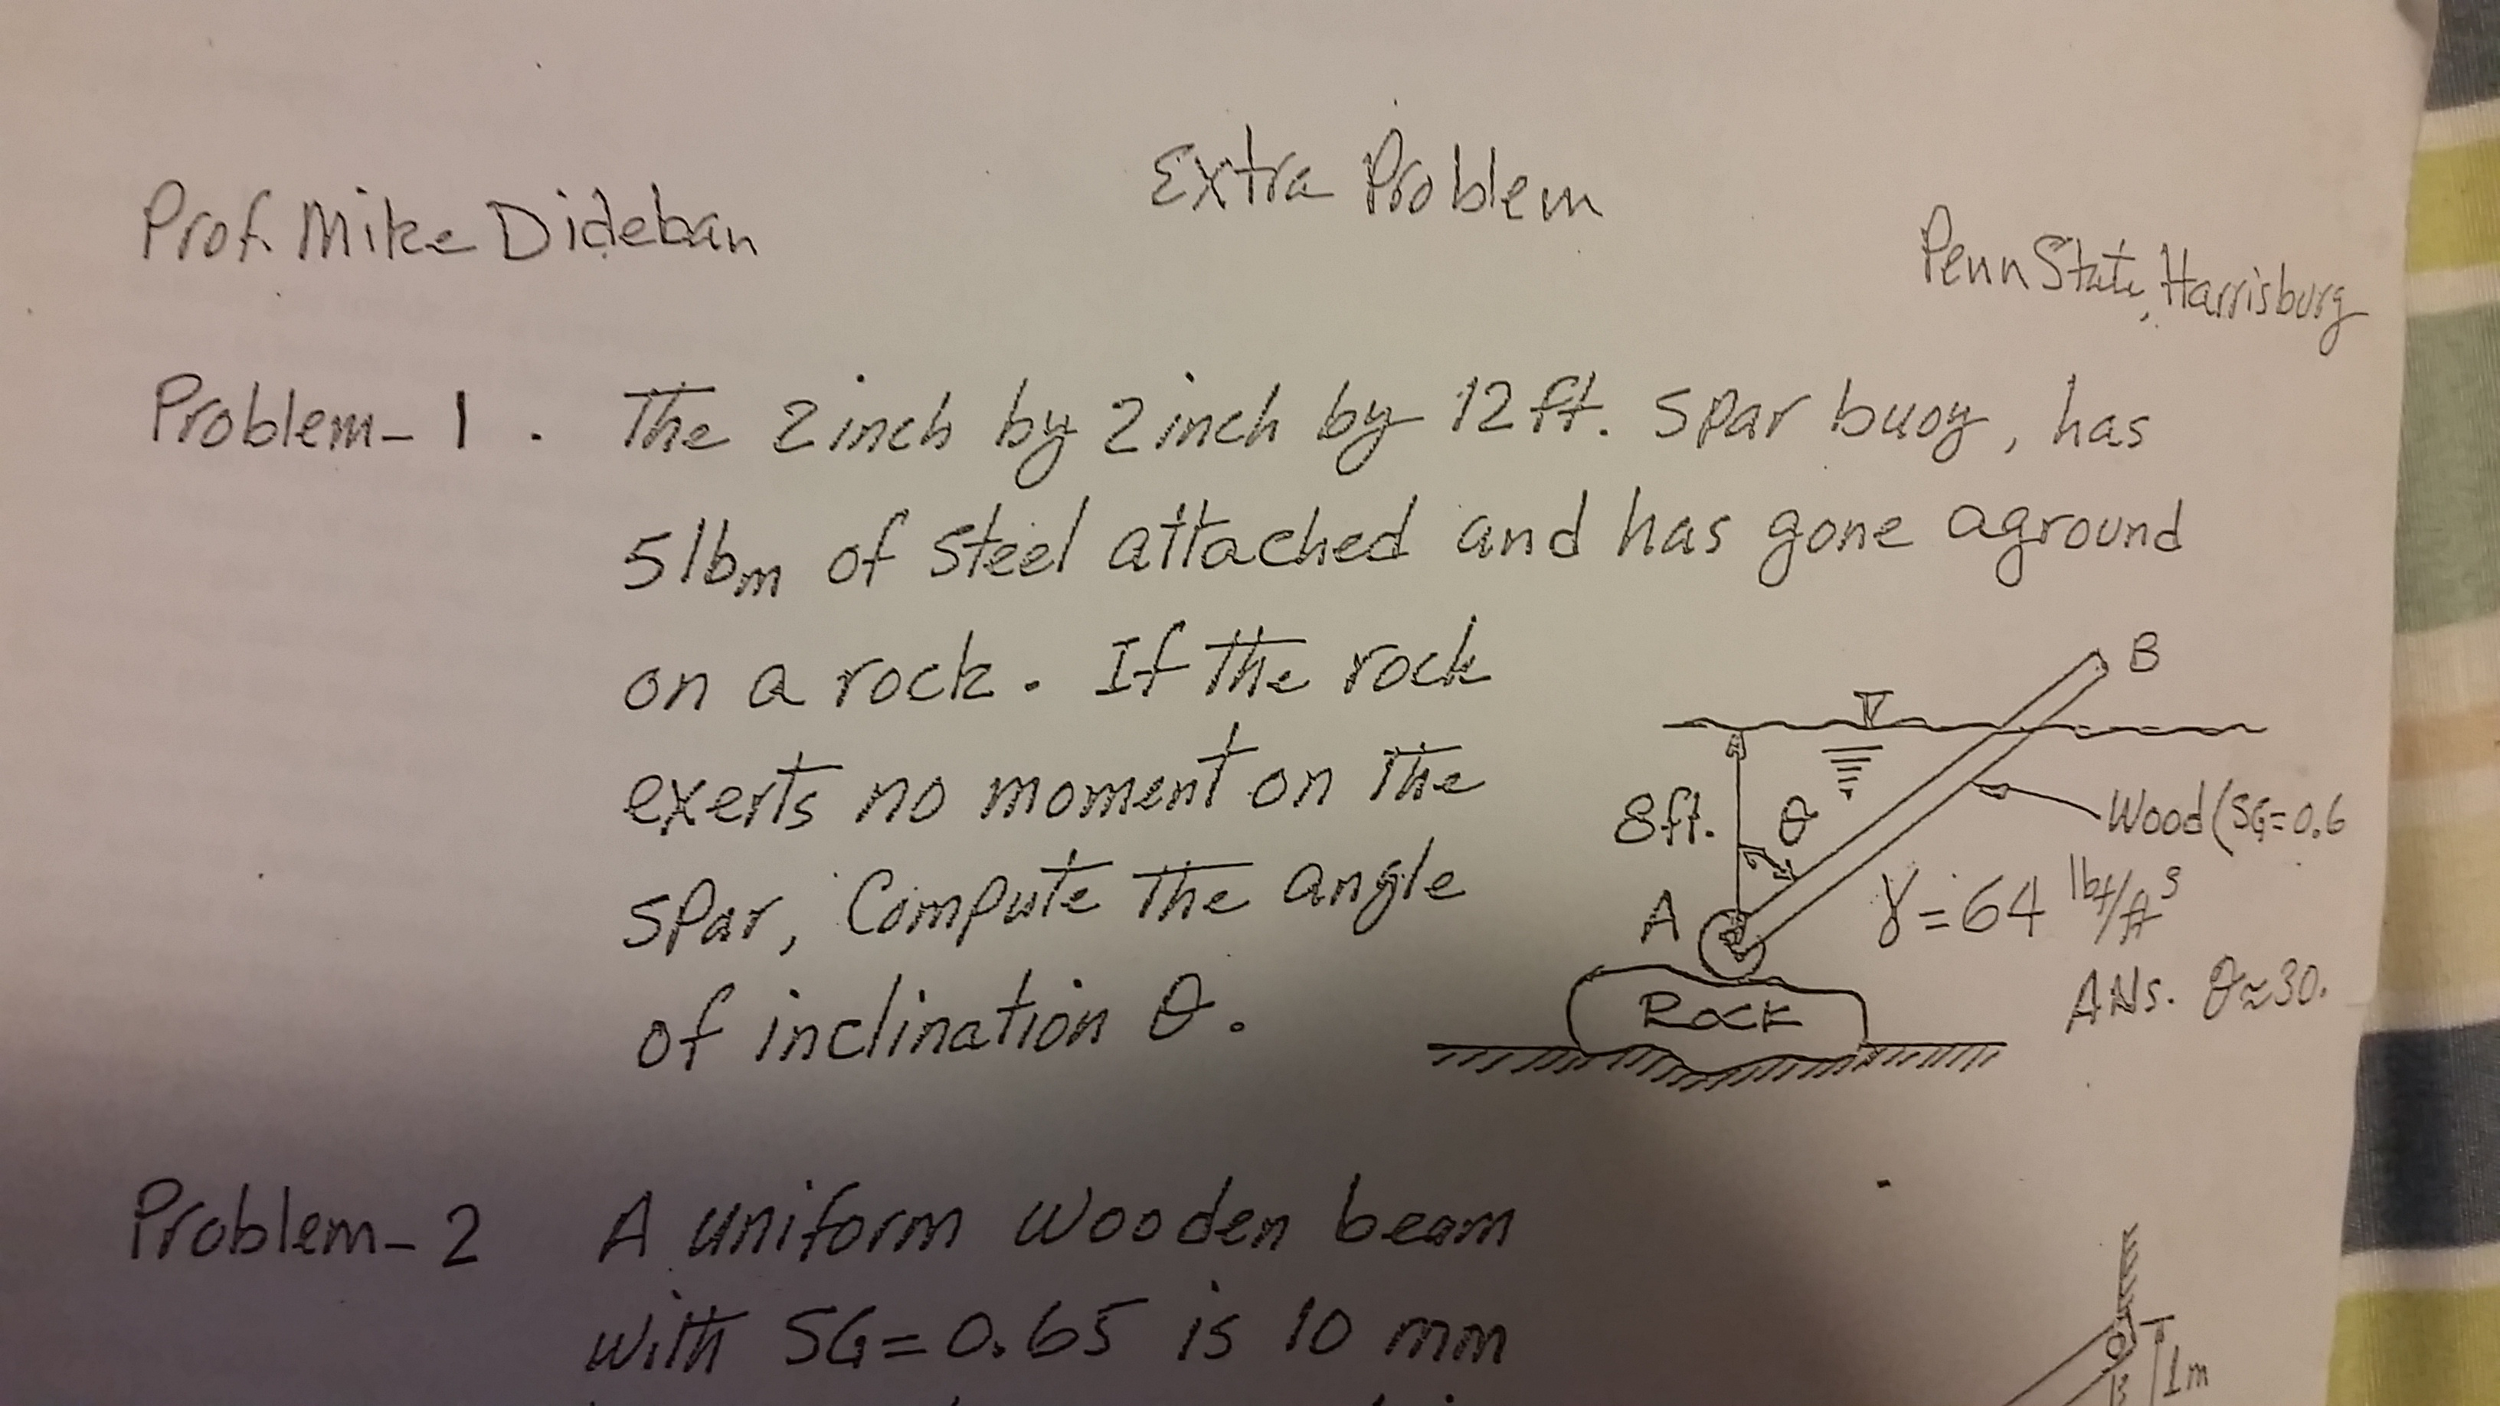 Extra Problem
Prof. Mike Dideban
Penn State, Harrisburg
Problem-1. The 2 inch by 2 inch by 12 ft. spar buoy, has
5 lbm of steel attached and has gone aground
on a rock. If the rock
exerts no moment on the
spar, Compute the angle
of inclination θ.
B
8ft.
θ
Wood (SG=0.6
A
γ=64 lbf/ft³
ROCK
ANS. θ≈30.
Problem-2 A uniform wooden beam
with SG=0.65 is 10 mm
1m